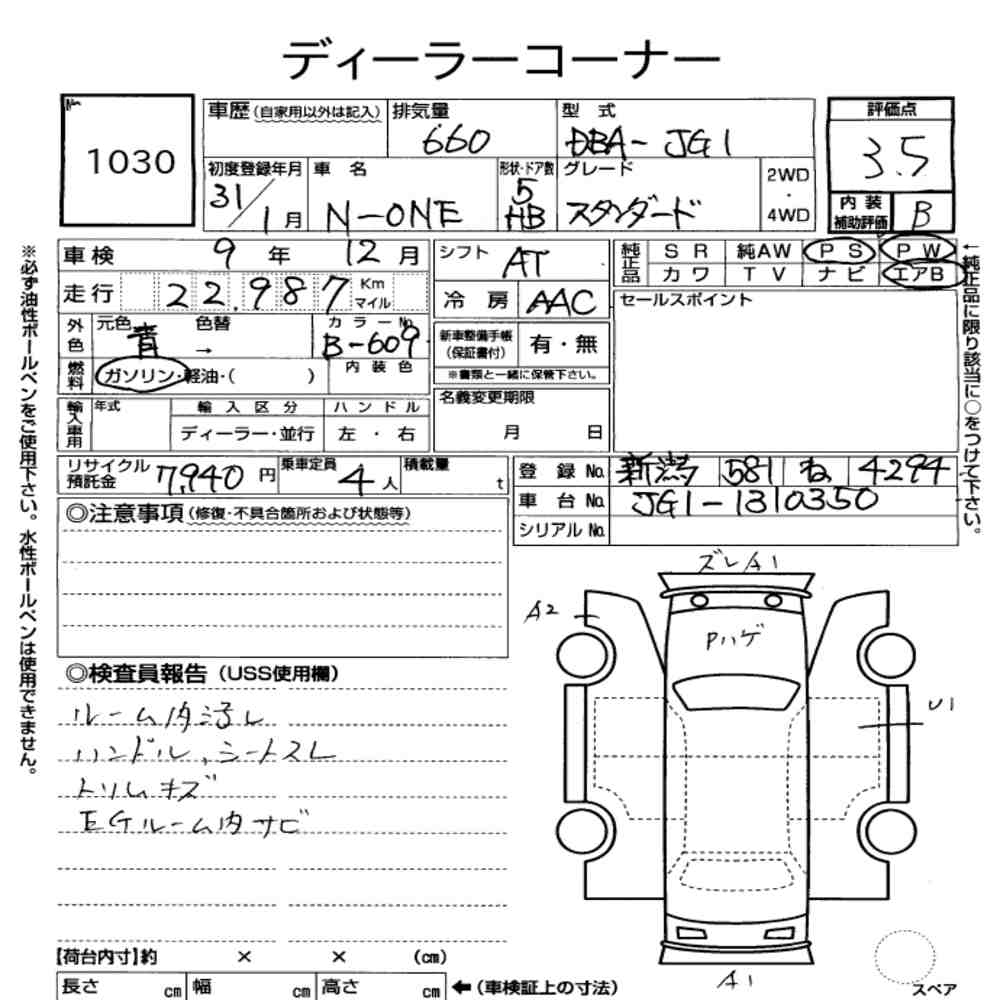 ディーラーコーナー
No.
1030
車歴(自家用以外は記入)
排気量
660
型 式
DBA-JG1
評価点
3.5
初度登録年月
31/1月
車 名
N-ONE
形状・ドア数
5
HB
グレード
スタンダード
2WD
・
4WD
内 装
補助評価
B
車検 9年 12月
シフト AT
純正品
SR 純AW PS PW
カワ TV ナビ エアB
走行 22.987 Km マイル
冷 房 AAC
セールスポイント
外色
元色 青 → 色替
カラーNo. B-609
新車整備手帳
(保証書付)
有・無
※書類と一緒に保管下さい。
燃料
ガソリン・軽油・( )
内 装 色
名義変更期限
月 日
輸入車用
年式
輸 入 区 分
ハ ン ド ル
ディーラー・並行
左 ・ 右
リサイクル
預託金
7,940円
乗車定員
4人
積載量
t
登 録 No. 新潟 581 ね 4294
車 台 No. JG1-1310350
シリアル No.
◎注意事項(修復・不具合箇所および状態等)
◎検査員報告(USS使用欄)
ルーム内汚レ
ハンドル、シートスレ
トリムキズ
EGルーム内サビ
ズレA1
A2
Pハゲ
U1
A1
スペア
【荷台内寸】約 × × (cm)
長さ cm 幅 cm 高さ cm ←(車検証上の寸法)
※必ず油性ボールペンをご使用下さい。水性ボールペンは使用できません。
←純正品に限り該当に○をつけて下さい。